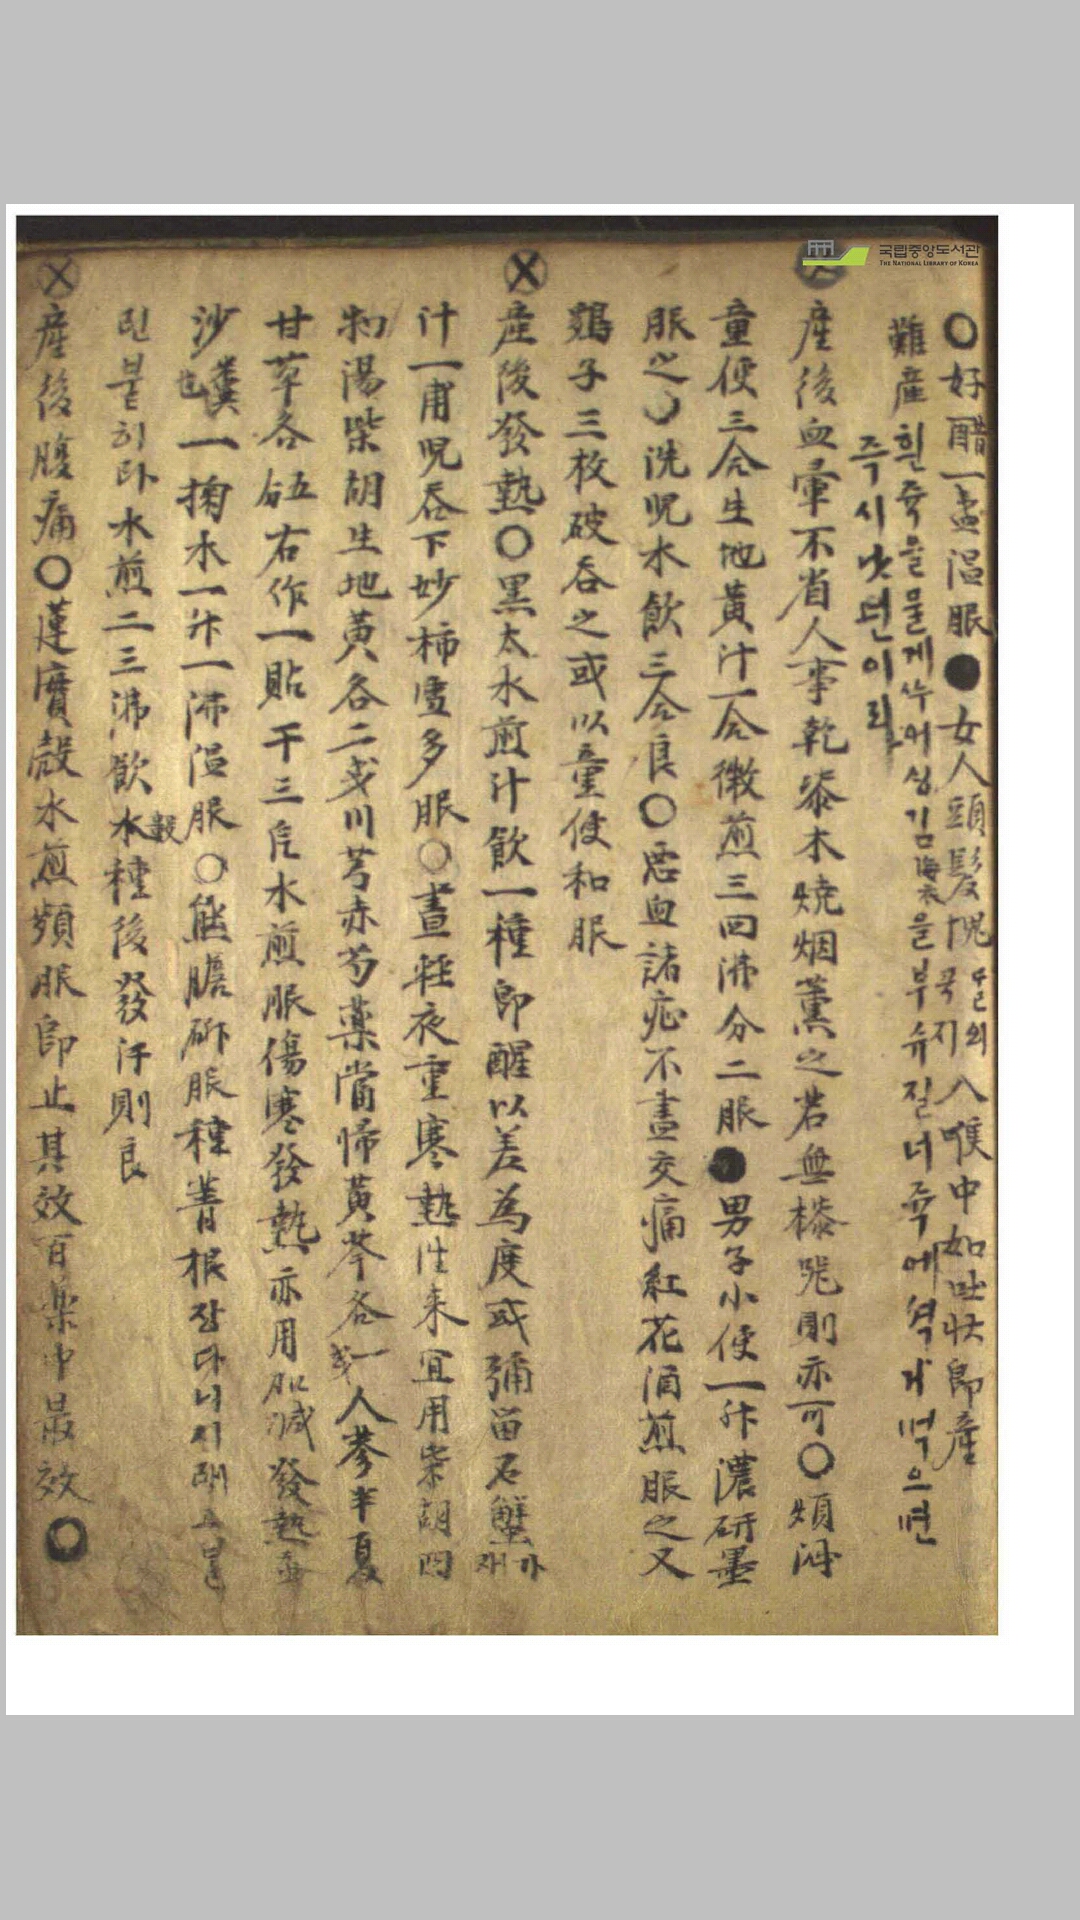 국립중앙도서관
THE NATIONAL LIBRARY OF KOREA
○好醋一盞温服●女人頭髮 入喉中如吐状即産
難産흰쥭을물게쑤어싱김海衣을부슈질너쥭에셕거먹으면
즉시낫턴이라
産後血暈不省人事乾漆木燒烟薰之若無漆 則亦可○煩
童便三合生地黃汁一合微煎三四沸分二服●男子小便一升濃研墨
服之○洗児水飲三合良○惡血諸疝不盡交痛紅花酒煎服之又
鷄子三枚破吞之或以童便和服
産後發熱○黑太水煎汁飲一種即醒以差為度或彌留石蟹가재
汁一甫児吞下妙柿雪多服○晝輕夜重寒熱往来宜用柴胡四
物湯柴胡生地黃各二戔川芎赤芍藥當帰黃芩各一戔人參半夏
甘草各 五右作一貼干三片水煎服傷寒發熱亦用 發熱
沙糞也一掬水一升一沸温服○熊膽 服種菁根장다니
블히 水煎二三沸飲水 種後發汗則良
産後腹痛○蓮實殼水煎頻服即止其效百藥中最效○